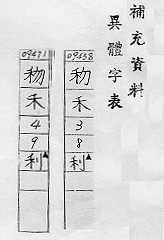 補充資料
異體字表
09438
禾
3
8
利▲
09471
禾
4
9
利▲